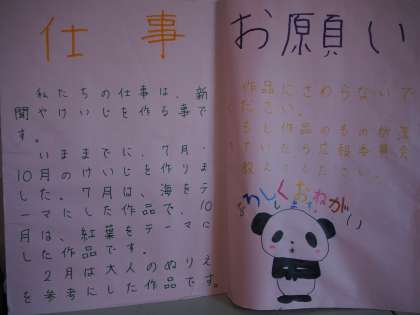 仕事
私たちの仕事は、新
聞やけいじを作る事で
す。
いままでに、7月・
10月のけいじを作りま
した。7月は、海をテ
ーマにした作品で、10
月は、紅葉をテーマに
した作品です。
2月は大人のぬりえ
を参考にした作品です。
お願い
作品にさわらないで
ください。
もし作品のもの
ていたら広報委員会
教えてください。
よろしくおねがい
します。